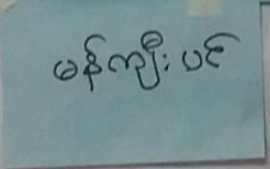 မန်ကျီးပင်